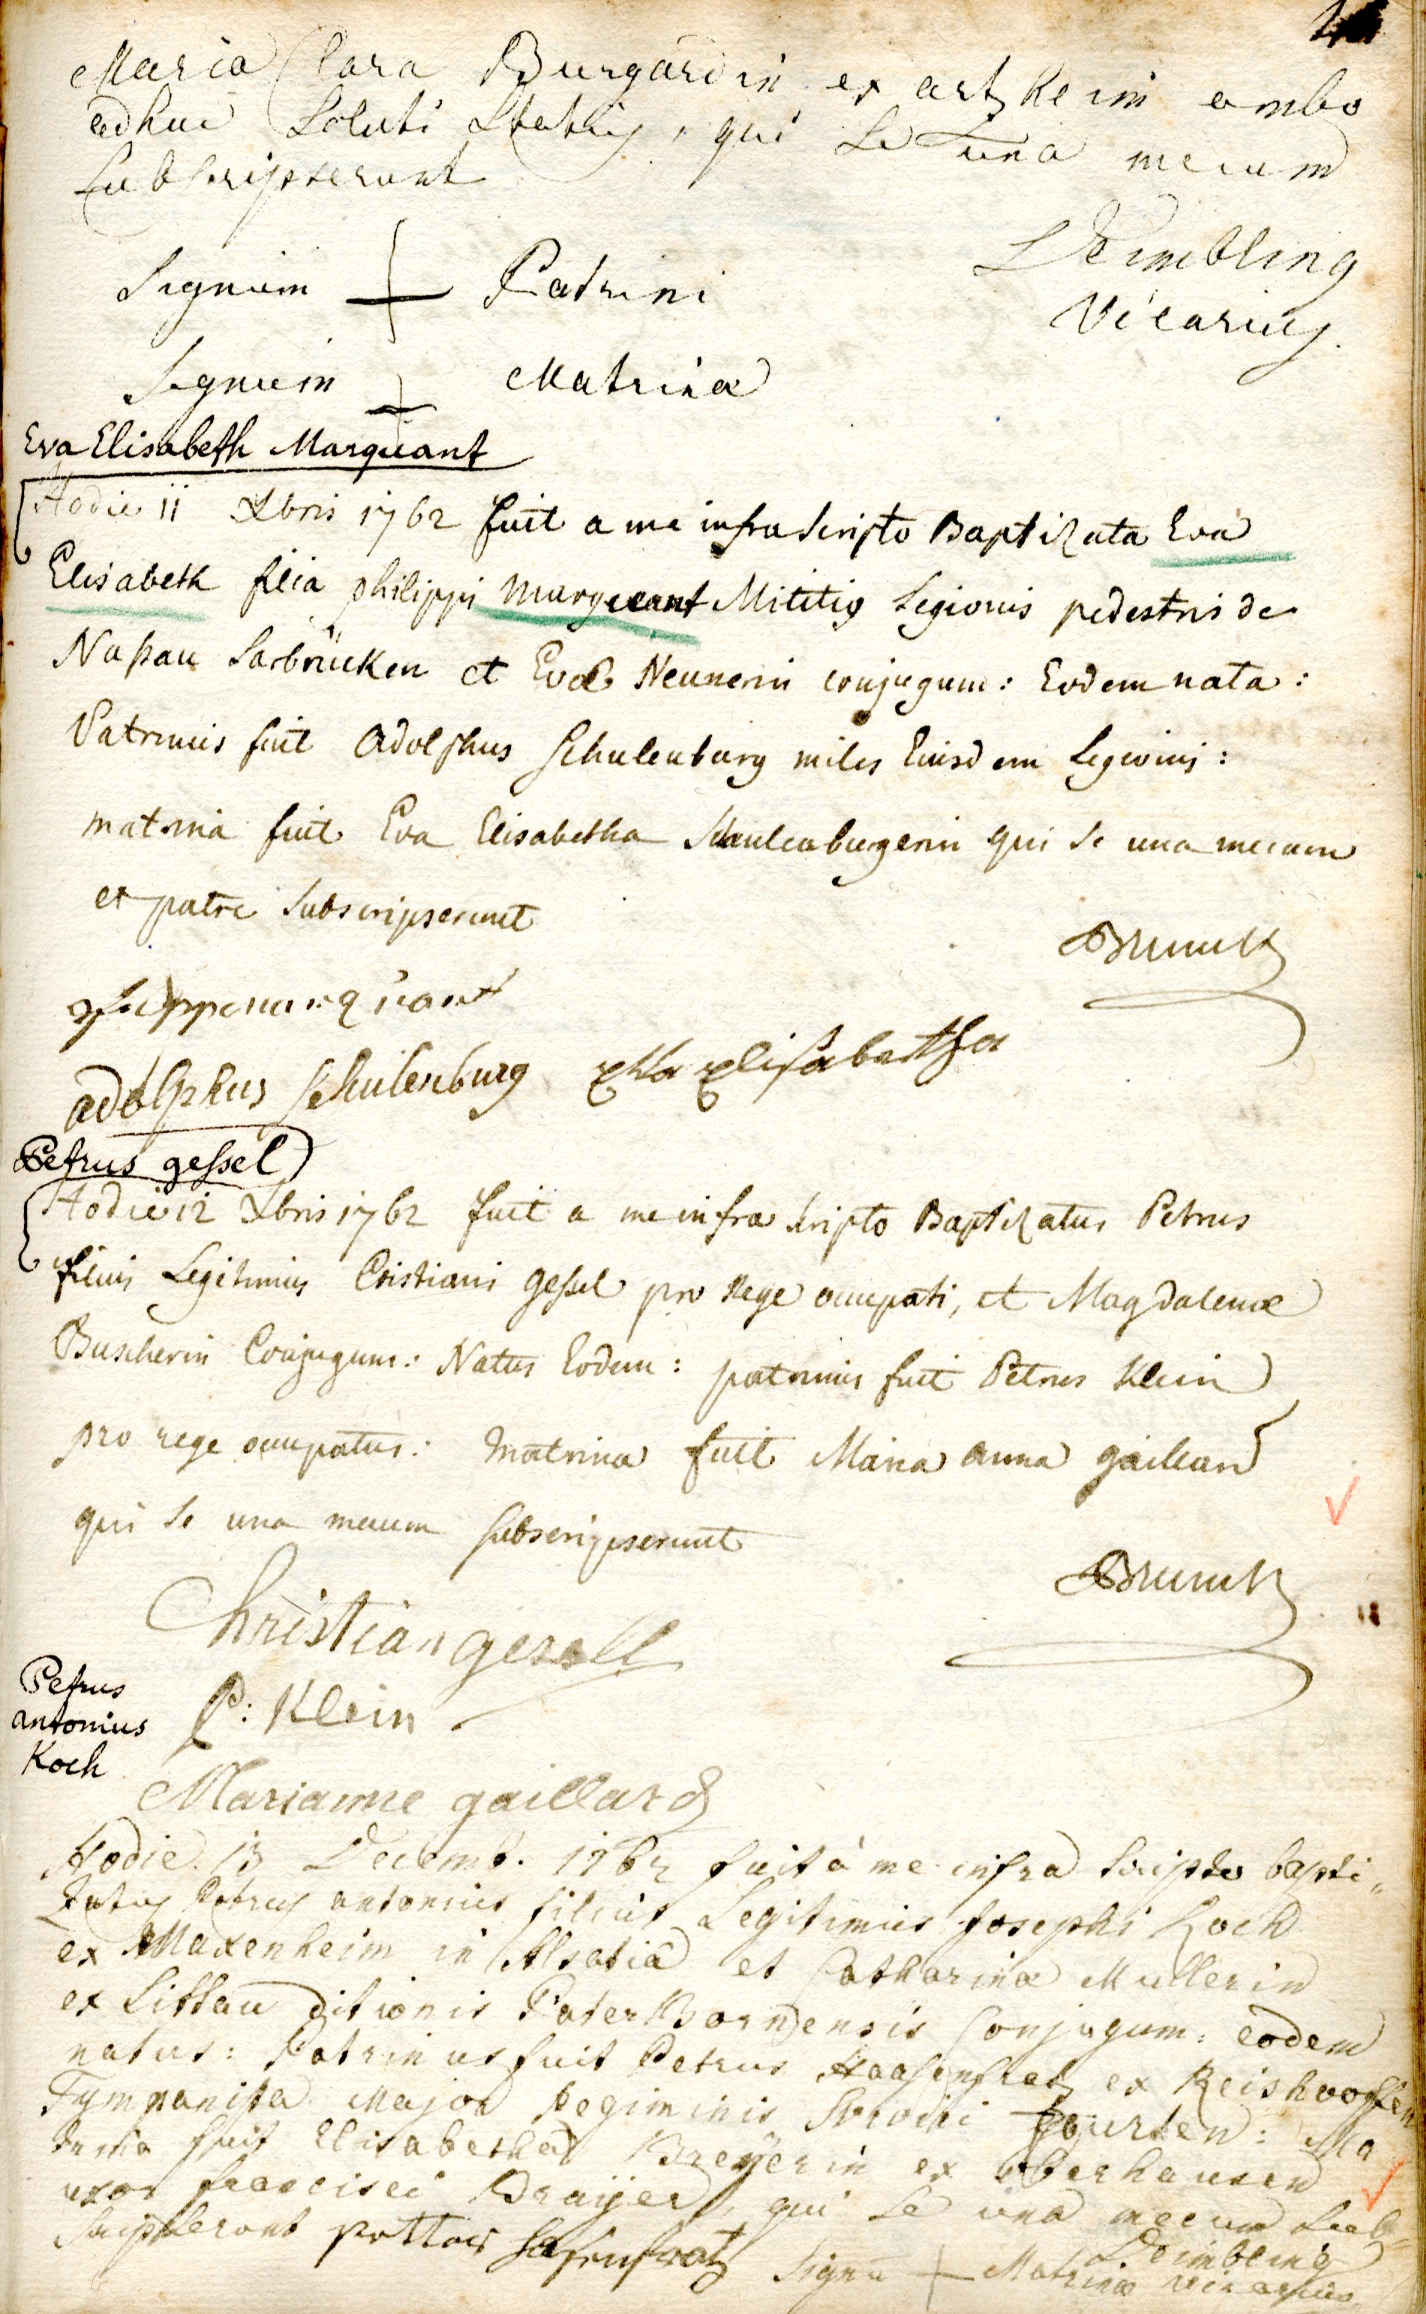 Maria Clara Burgardin ex artzheim ambo
adhuc Soluti Status, qui Se una mecum
Subscripserunt
Deimbling
Vicarius.
Signum + Patrini
Signum + Matrinæ
Eva Elisabeth Marquant
Hodie 11 Xbris 1762 fuit a me infra scripto Baptizata Eva
Elisabeth filia philippi Marquant Militis Legionis pedestris de
Naßau Sarbrücken et Evæ Neunerin conjugum: Eodem nata:
Patrinus fuit Adolphus Schulenburg miles Eiusdem Legionis:
matrina fuit Eva Elisabetha Schulenburgerin qui se una mecum
et patre subscripserunt
Brunck
adolphus schulenburg Eva Elisabetha
Petrus geßel
Hodie 12 Xbris 1762 fuit a me infra scripto Baptizatus Petrus
filius Legitimus Cristiani geßel pro Rege occupati, et Magdalenæ
Buscherin Conjugum: Natus Eodem: patrinus fuit Petrus Klein
pro rege occupatus: Matrina fuit Maria anna gaillard
qui se una mecum subscripserunt
Brunck
Christian gesell
Petrus
antonius
Koch
P: Klein
Marianne gaillard
Hodie 13 Decemb. 1762 fuit à me infra Scripto bapti„
Zatus Petrus antonius filius Legitimus Josephi Koch
ex Maxenheim in Alsatiâ et Catharinæ Mullerin
ex Littau ditionis PaterBornensis Conjugum: eodem
natus: Patrinus fuit Petrus Haasenfratz ex Reishooffen
Tympanista Major Regiminis : Ma
trina fuit Elisabetha Breÿerin ex oberhausen
uxor francisci Braÿer, qui Se una mecum Sub=
Scripserunt Hasenfratz Signū + Matrinæ
Deimbling
vicarius